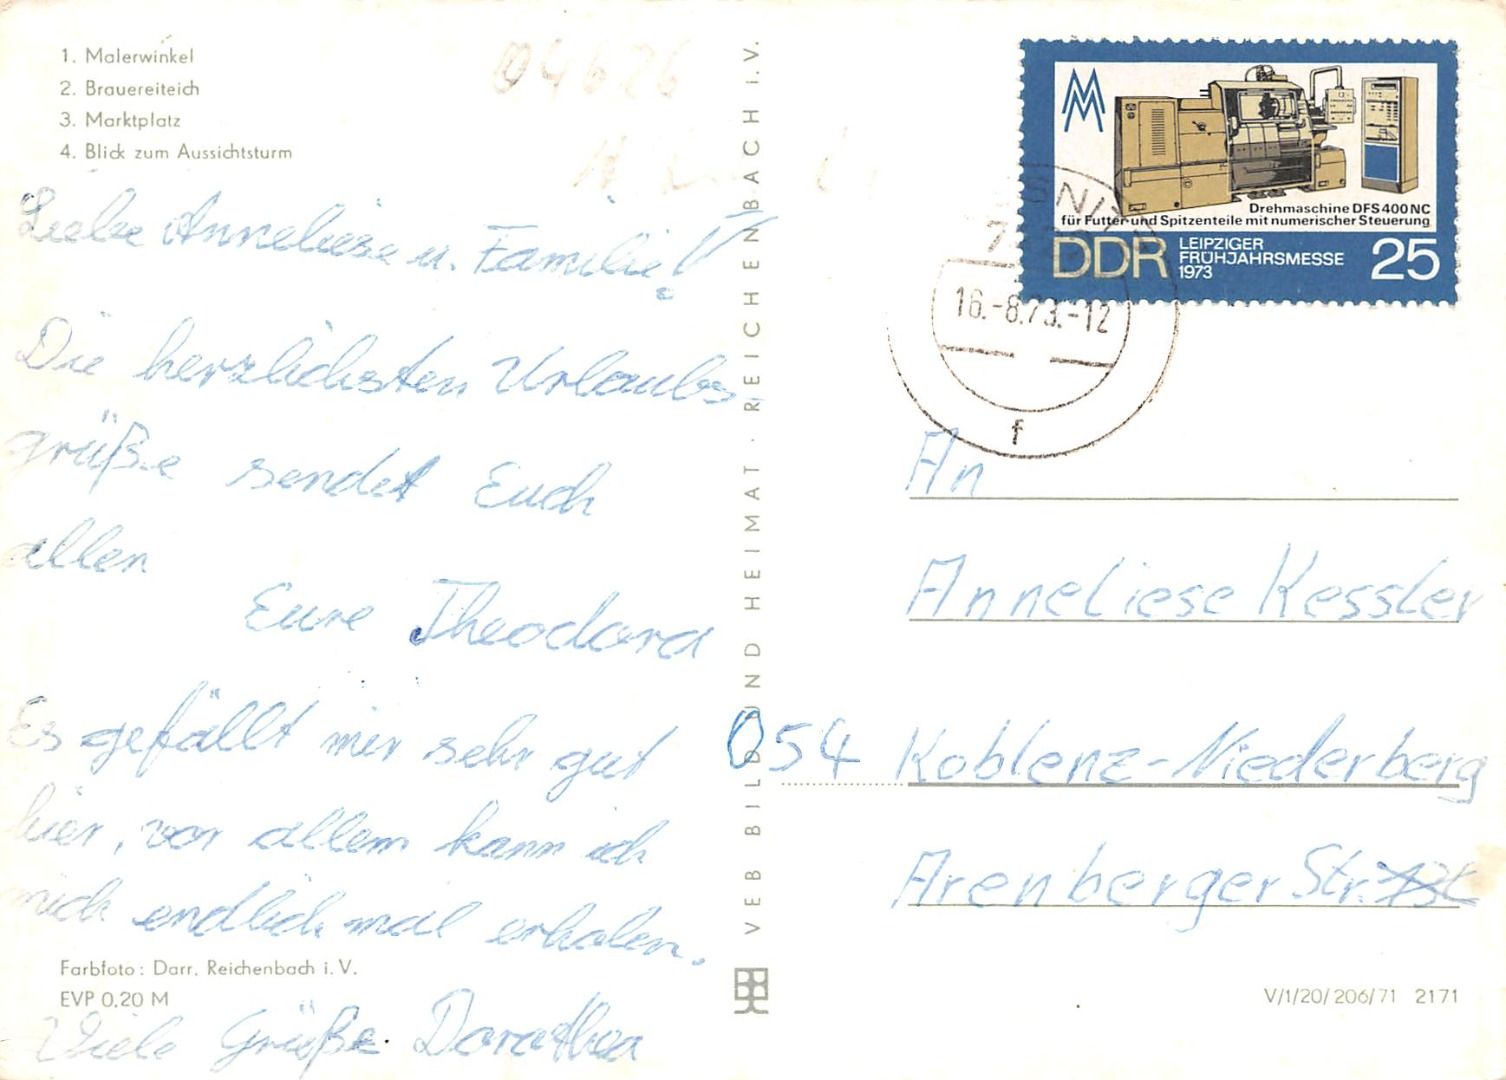 1. Malerwinkel
2. Brauereiteich
3. Marktplatz
4. Blick zum Aussichtsturm
Liebe Anneliese u. Familie!
Die herzlichsten Urlaubs-
grüße sendet Euch
allen
Eure Theodora
Es gefällt mir sehr gut
hier, vor allem kann ich
mich endlich mal erholen.
Farbfoto: Darr, Reichenbach i. V.
EVP 0,20 M
Viele Grüße Dorothea
VEB BILD UND HEIMAT · REICHENBACH i. V.
04626
MM
Drehmaschine DFS 400 NC
für Futter- und Spitzenteile mit numerischer Steuerung
DDR LEIPZIGER FRÜHJAHRSMESSE 1973 25
16.-8.73.-12
f
An
Anneliese Kessler
054 Koblenz-Niederberg
Arenberger Str.
V/1/20/206/71 2171